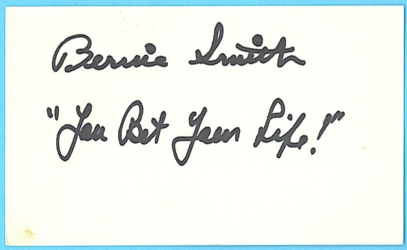 Bernie Smith
"You Bet Your Life!"